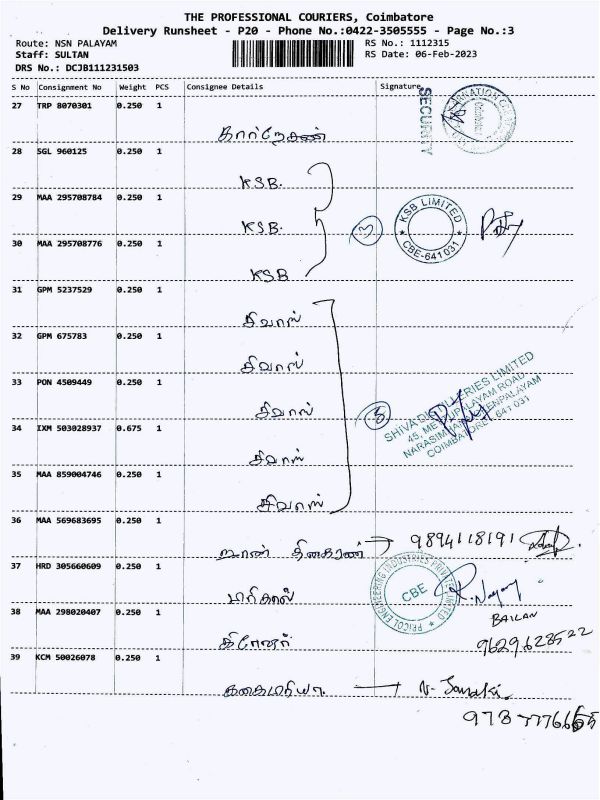 THE PROFESSIONAL COURIERS, Coimbatore
Delivery Runsheet - P20 - Phone No.:0422-3505555 - Page No.:3
Route: NSN PALAYAM RS No.: 1112315
Staff: SULTAN RS Date: 06-Feb-2023
DRS No.: DCJB111231503
S No Consignment No Weight PCS Consignee Details Signature
27 TRP 8070301 0.250 1
SECURITY
28 SGL 960125 0.250 1
KSB.
29 MAA 295708784 0.250 1
KSB.
3
KSB LIMITED
CBE-641 031
30 MAA 295708776 0.250 1
KSB
31 GPM 5237529 0.250 1
சிவாஸ்
32 GPM 675783 0.250 1
சிவாஸ்
33 PON 4509449 0.250 1
சிவாஸ்
5
SHIVA DISTILLERIES LIMITED
45, METTUPALAYAM ROAD
NARASIMHANAICKENPALAYAM
COIMBATORE - 641 031
34 IXM 503028937 0.675 1
சிவாஸ்
35 MAA 859004746 0.250 1
சிவாஸ்
36 MAA 569683695 0.250 1
9894118191
37 HRD 305660609 0.250 1
PRICOL ENGINEERING INDUSTRIES PRIVATE LIMITED
CBE
38 MAA 298020407 0.250 1
9629628522
39 KCM 50026078 0.250 1